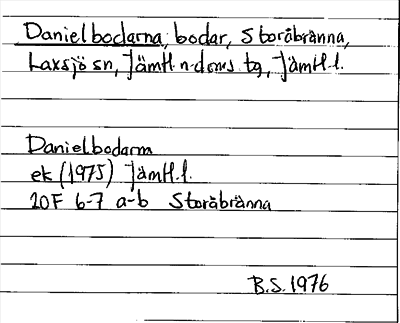 Danielbodarna, bodar, Storåbränna,
Laxsjö sn, Jämtl. n. doms tg, Jämtl. l.
Danielbodarna
ek (1975) Jämtl. l.
20F 6-7 a-b Storåbränna
B.S. 1976